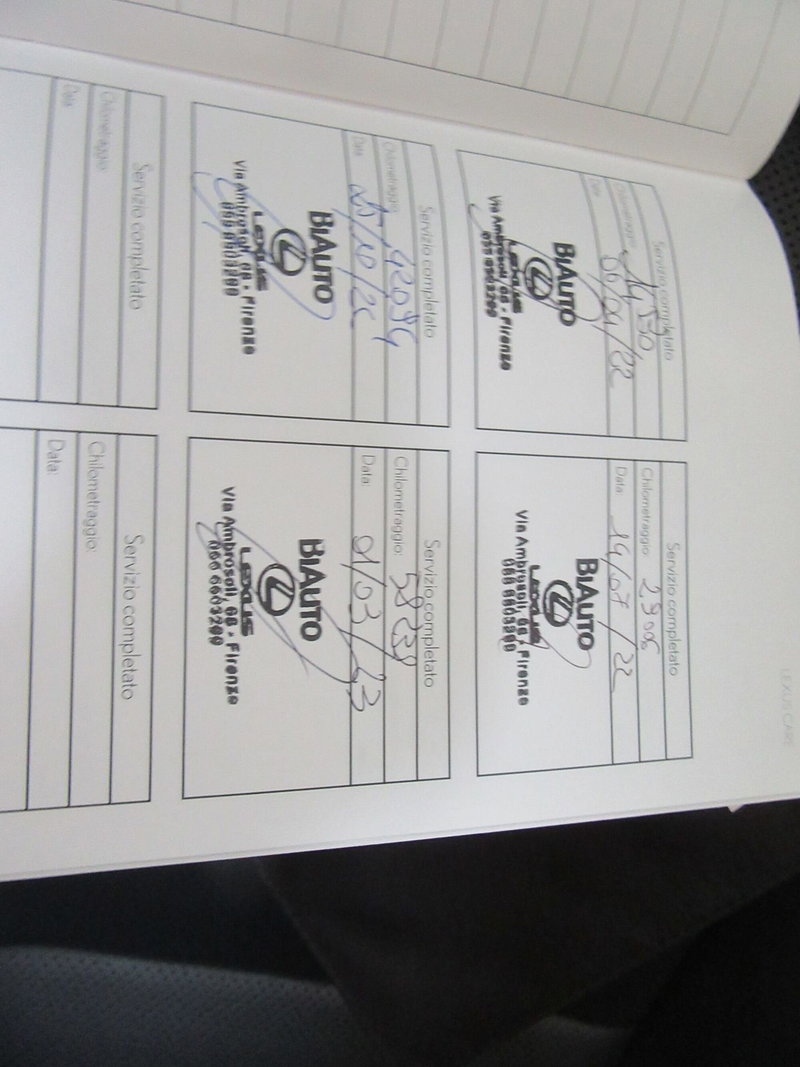 LEXUS CARE
Servizio completato
Chilometraggio: 14530
Data: 06/04/22
BIAUTO
LEXUS
Via Ambrosoli, 68 - Firenze
Servizio completato
Chilometraggio: 29006
Data: 14/07/22
BIAUTO
LEXUS
Via Ambrosoli, 68 - Firenze
Servizio completato
Chilometraggio: 42094
Data: 25/10/22
BIAUTO
LEXUS
Via Ambrosoli, 68 - Firenze
Servizio completato
Chilometraggio: 58739
Data: 01/03/23
BIAUTO
LEXUS
Via Ambrosoli, 68 - Firenze
Servizio completato
Chilometraggio:
Data:
Servizio completato
Chilometraggio:
Data: